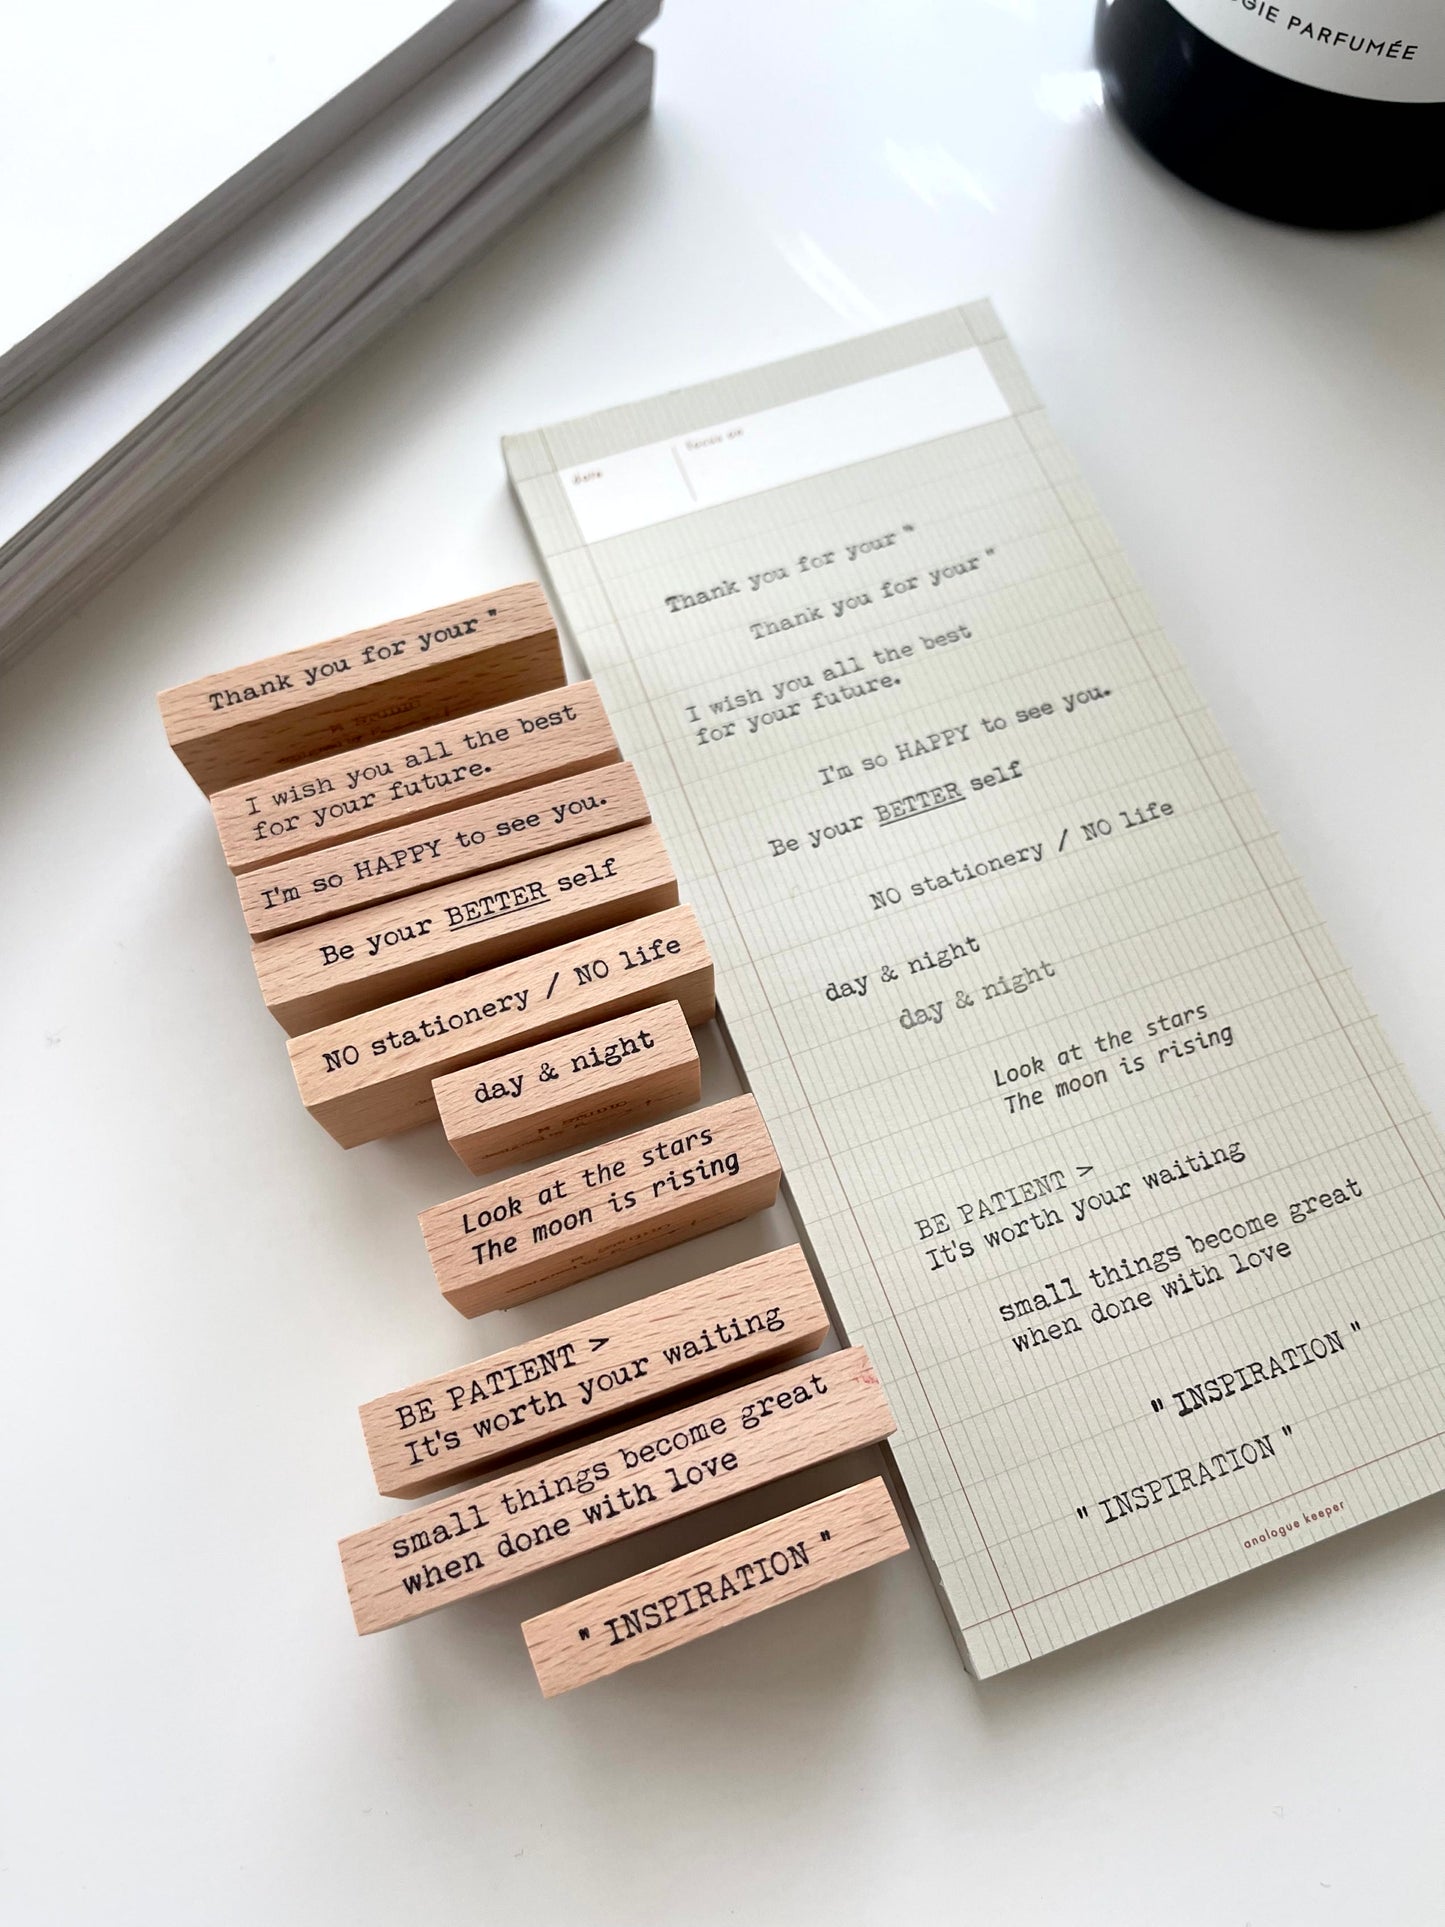 GIE PARFUMÉE
Date
Focus on
Thank you for your "
Thank you for your "
I wish you all the best
for your future.
I'm so HAPPY to see you.
Be your BETTER self
NO stationery / NO life
day & night
day & night
Look at the stars
The moon is rising
BE PATIENT >
It's worth your waiting
small things become great
when done with love
" INSPIRATION "
" INSPIRATION "
analogue keeper
Thank you for your "
STUDIO
designed by
I wish you all the best
for your future.
I'm so HAPPY to see you.
Be your BETTER self
NO stationery / NO life
day & night
STUDIO
designed by
Look at the stars
The moon is rising
BE PATIENT >
It's worth your waiting
small things become great
when done with love
" INSPIRATION "